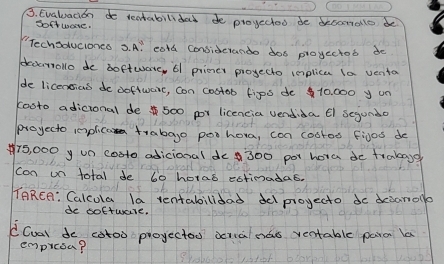 3. Evaluación de rentabilidad de proyectos de desarrollo de
software.
"TechSoluciones S.A." está considerando dos proyectos de
desarrollo de software. El primer proyecto implica la venta
de licencias de software, con costos fijos de $10.000 y un
costo adicional de $500 por licencia vendida. El segundo
proyecto implica trabajo por hora, con costos fijos de
$15,000 y un costo adicional de $300 por hora de trabajo,
con un total de 60 horas estimadas.
TAREA: Calcula la rentabilidad del proyecto de desarrollo
de software.
¿Cual de estos proyectos seria más rentable para la
empresa?